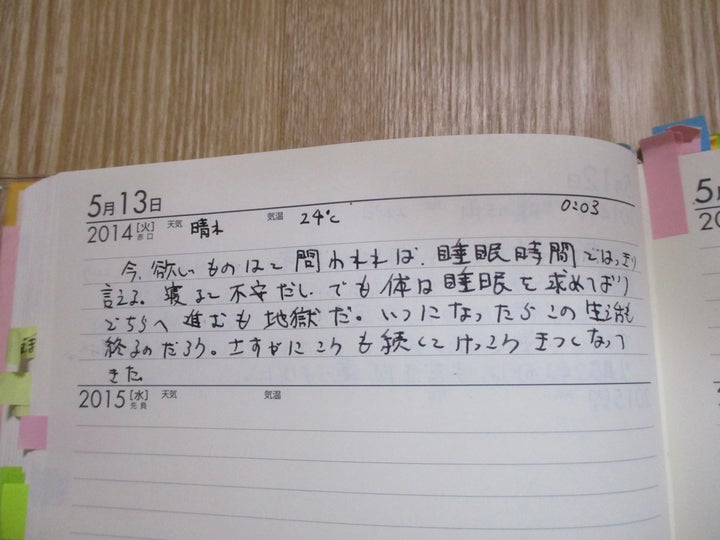 5月13日
2014[火]赤口 天気 晴れ 気温 24℃ 0:03
今、欲しいものはと問われれば、睡眠時間ではっきり
言える。寝ると不安だし、でも体は睡眠を求めており
どちらへ進むも地獄だ。いつになったらこの生活も
終るのだろう。さすがにこうも続くとけっこうきつくなって
きた。
2015[水]先負 天気 気温
12日
5
20